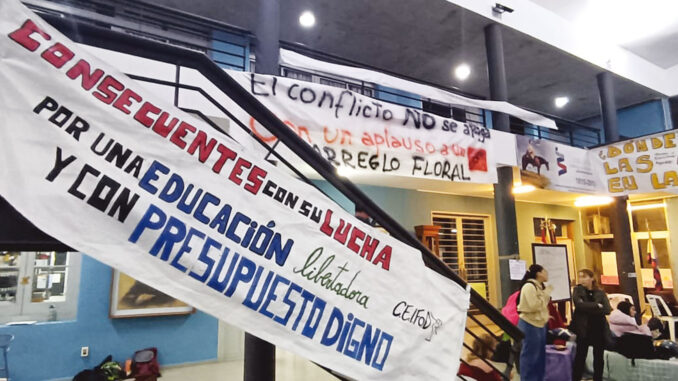 CONSECUENTES CON SU LUCHA
POR UNA EDUCACIÓN libertadora
Y CON PRESUPUESTO DIGNO
CEIFOD
El conflicto NO se apaga
con un aplauso a un
ARREGLO FLORAL
¿DÓNDE
LAS
EN LA